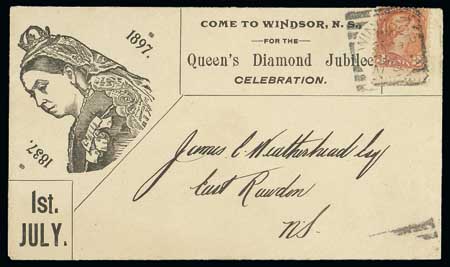 COME TO WINDSOR, N. S.,
FOR THE
Queen's Diamond Jubilee
CELEBRATION.
1897.
1837.
1st.
JULY.
James C Weatherhead Esq
East Rawdon
N.S.